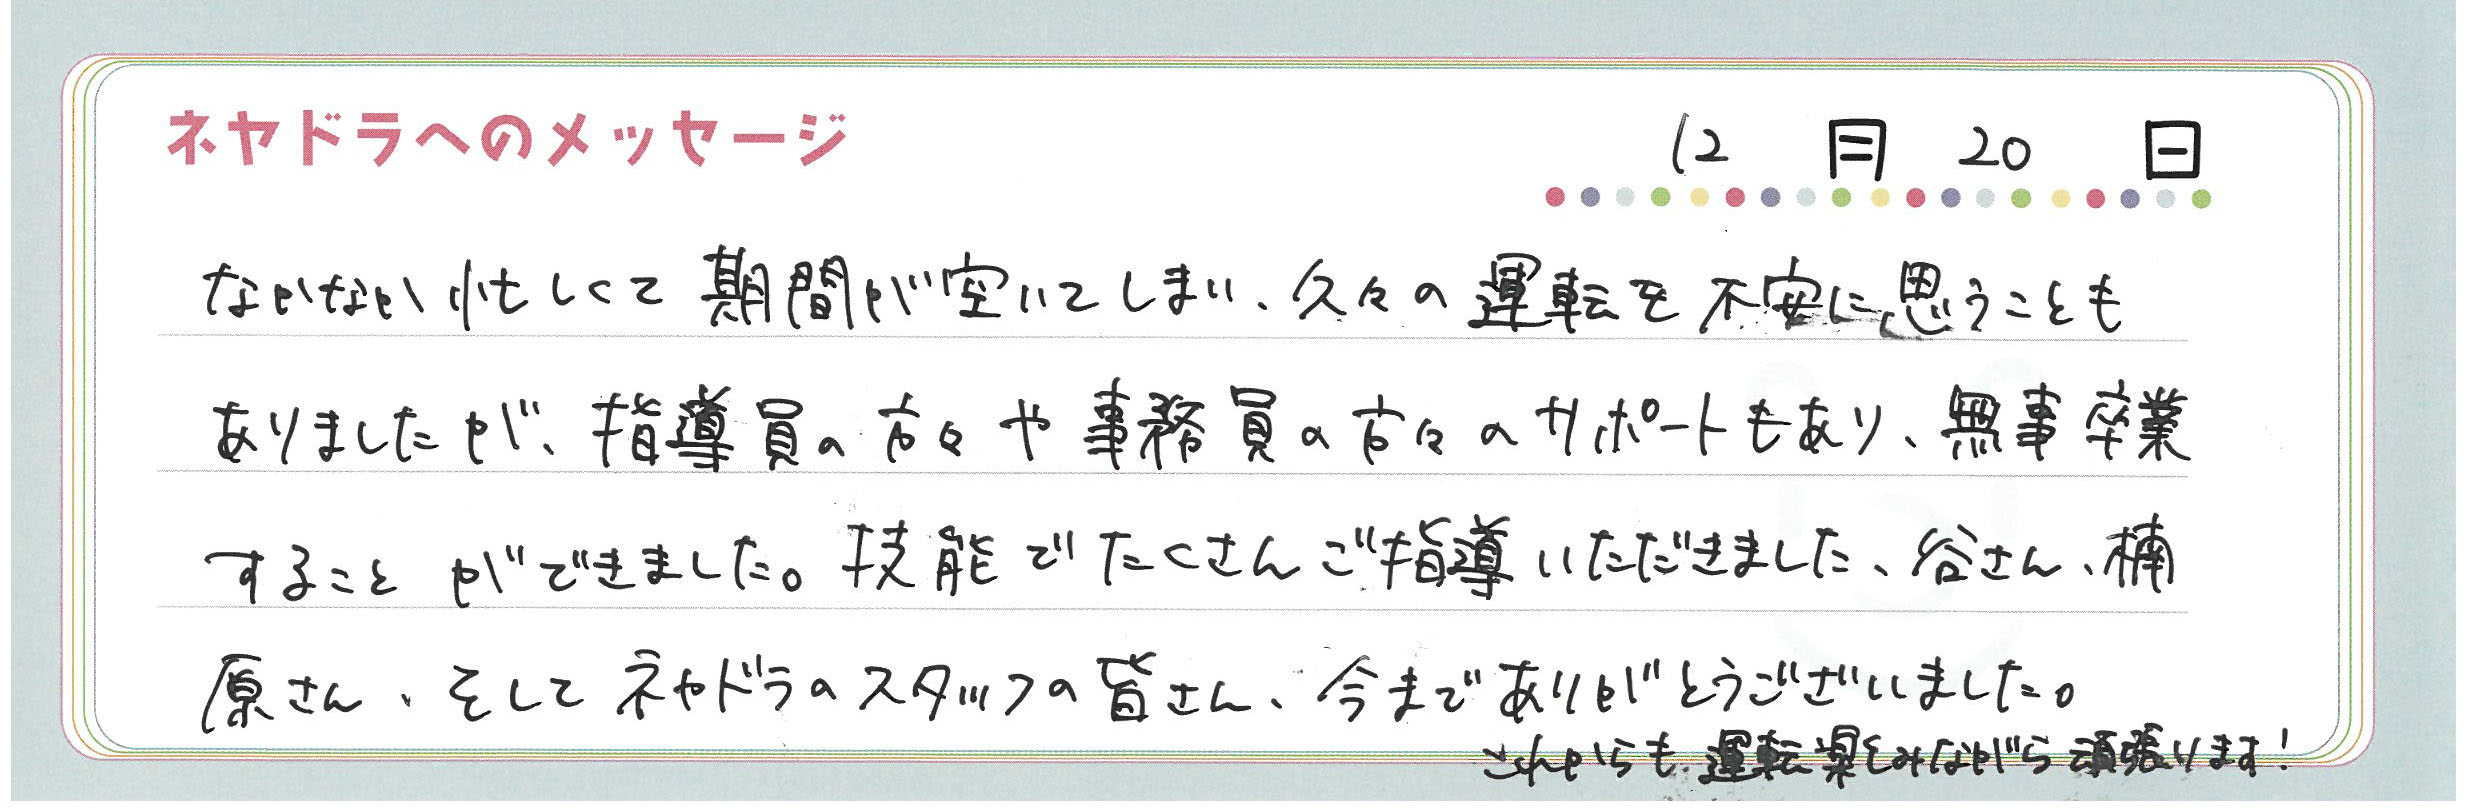 ネヤドラへのメッセージ
12月20日
なかなか忙しくて期間が空いてしまい、久々の運転を不安に思うことも
ありましたが、指導員の方々や事務員の方々のサポートもあり、無事卒業
することができました。技能でたくさんご指導いただきました、谷さん、楠
原さん、そしてネヤドラのスタッフの皆さん、今までありがとうございました。
これからも運転楽しみながら頑張ります!